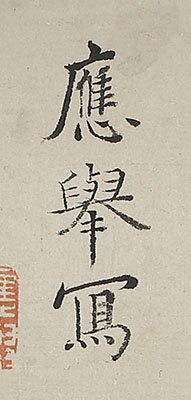 應舉寫